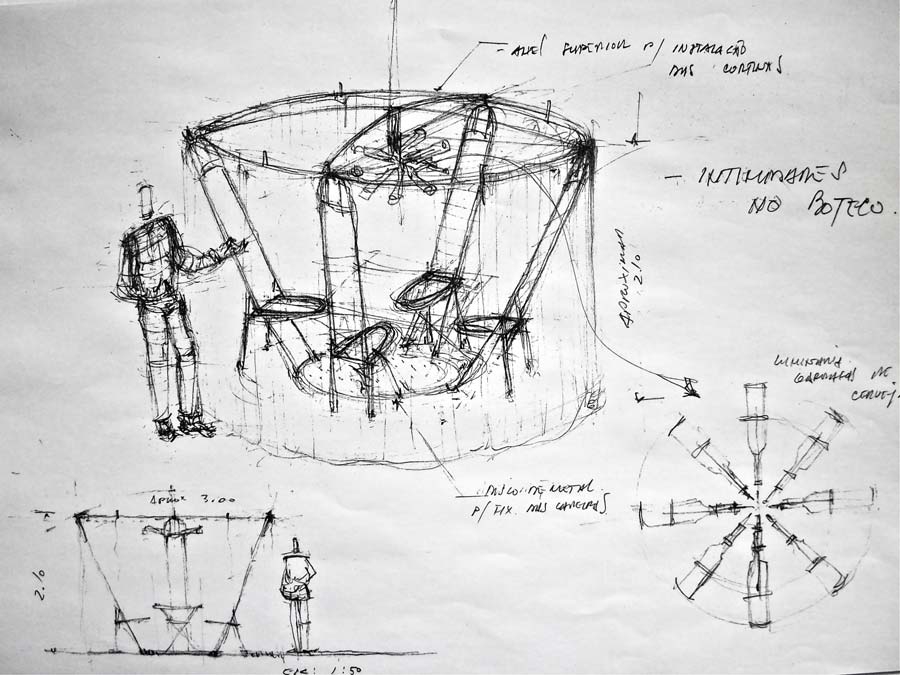 - ANEL SUPERIOR P/ INSTALAÇÃO
DAS CORTINAS
- INTIMIDADES
NO BOTECO.
2.10
LUMINÁRIA
GARRAFAS DE
CERVEJ
DISCO DE METAL
P/ FIX. DAS
APROX 3.00
2.10
ESC: 1:50